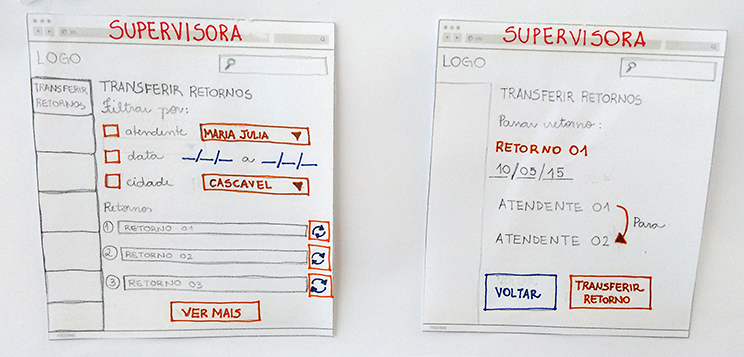 SUPERVISORA
LOGO
TRANSFERIR
RETORNOS
TRANSFERIR RETORNOS
Filtrar por:
atendente MARIA JULIA
data __/__/__ a __/__/__
cidade CASCAVEL
Retornos
1 RETORNO 01
2 RETORNO 02
3 RETORNO 03
VER MAIS
SUPERVISORA
LOGO
TRANSFERIR RETORNOS
Passar retorno:
RETORNO 01
10/09/15
ATENDENTE 01
Para
ATENDENTE 02
VOLTAR
TRANSFERIR
RETORNO